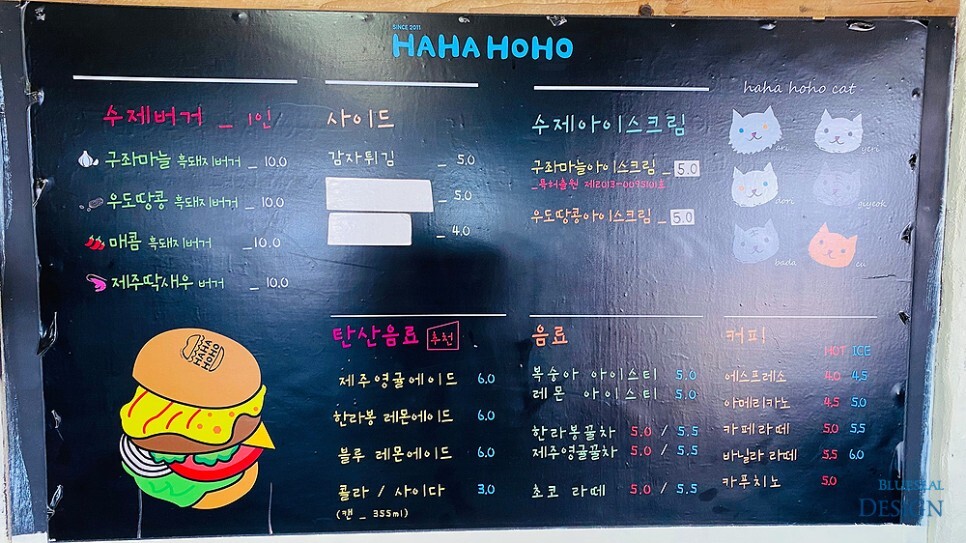 SINCE 2011
HAHA HOHO
수제버거 _ 1인
구좌마늘 흑돼지버거 _ 10.0
우도땅콩 흑돼지버거 _ 10.0
매콤 흑돼지버거 _ 10.0
제주딱새우 버거 _ 10.0
사이드
감자튀김 _ 5.0
_ 5.0
_ 4.0
수제아이스크림
구좌마늘아이스크림 _ 5.0
_특허출원 제2013-0095101호
우도땅콩아이스크림 _ 5.0
haha hoho cat
ari
yeri
dori
giyeok
bada
eu
HAHA
HOHO
탄산음료 추천
제주영귤에이드 6.0
한라봉 레몬에이드 6.0
블루 레몬에이드 6.0
콜라 / 사이다 3.0
(캔 _ 355ml)
음료
복숭아 아이스티 5.0
레몬 아이스티 5.0
한라봉꿀차 5.0 / 5.5
제주영귤꿀차 5.0 / 5.5
초코 라떼 5.0 / 5.5
커피
HOT ICE
에스프레소 4.0 4.5
아메리카노 4.5 5.0
카페라떼 5.0 5.5
바닐라 라떼 5.5 6.0
카푸치노 5.0
BLUESEAL
DESIGN